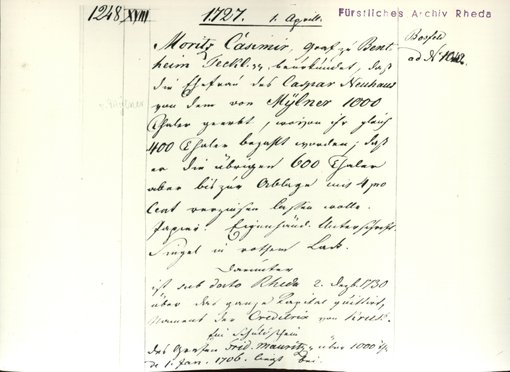 1248 XVIII
1727. 1. Aprill.
Fürstliches Archiv Rheda
ad N 1042
Moritz Casimir, Graf zu Bent-
heim Teckl. pp. beurkundet, daß
die Ehefrau des Caspar Neuhaus
von dem von Mÿlner 1000
Thaler geerbt, wovon ihr gleich
400 Thaler bezahlt worden; daß
er die übrigen 600 Thaler
aber bis zur Ablage mit 4 pro
Cent verzinsen lassen wolle.
Papier. Eigenhänd. Unterschrift.
Siegel in rothem Lack.
Darunter
ist sub dato Rheda 2. Dezb. 1730
über das ganze Capital quittirt,
Namens der Creditrix von
Ein Schuldschein
des Grafen Frid. Mauritz über 1000
de 1. Jan. 1706. liegt bei.